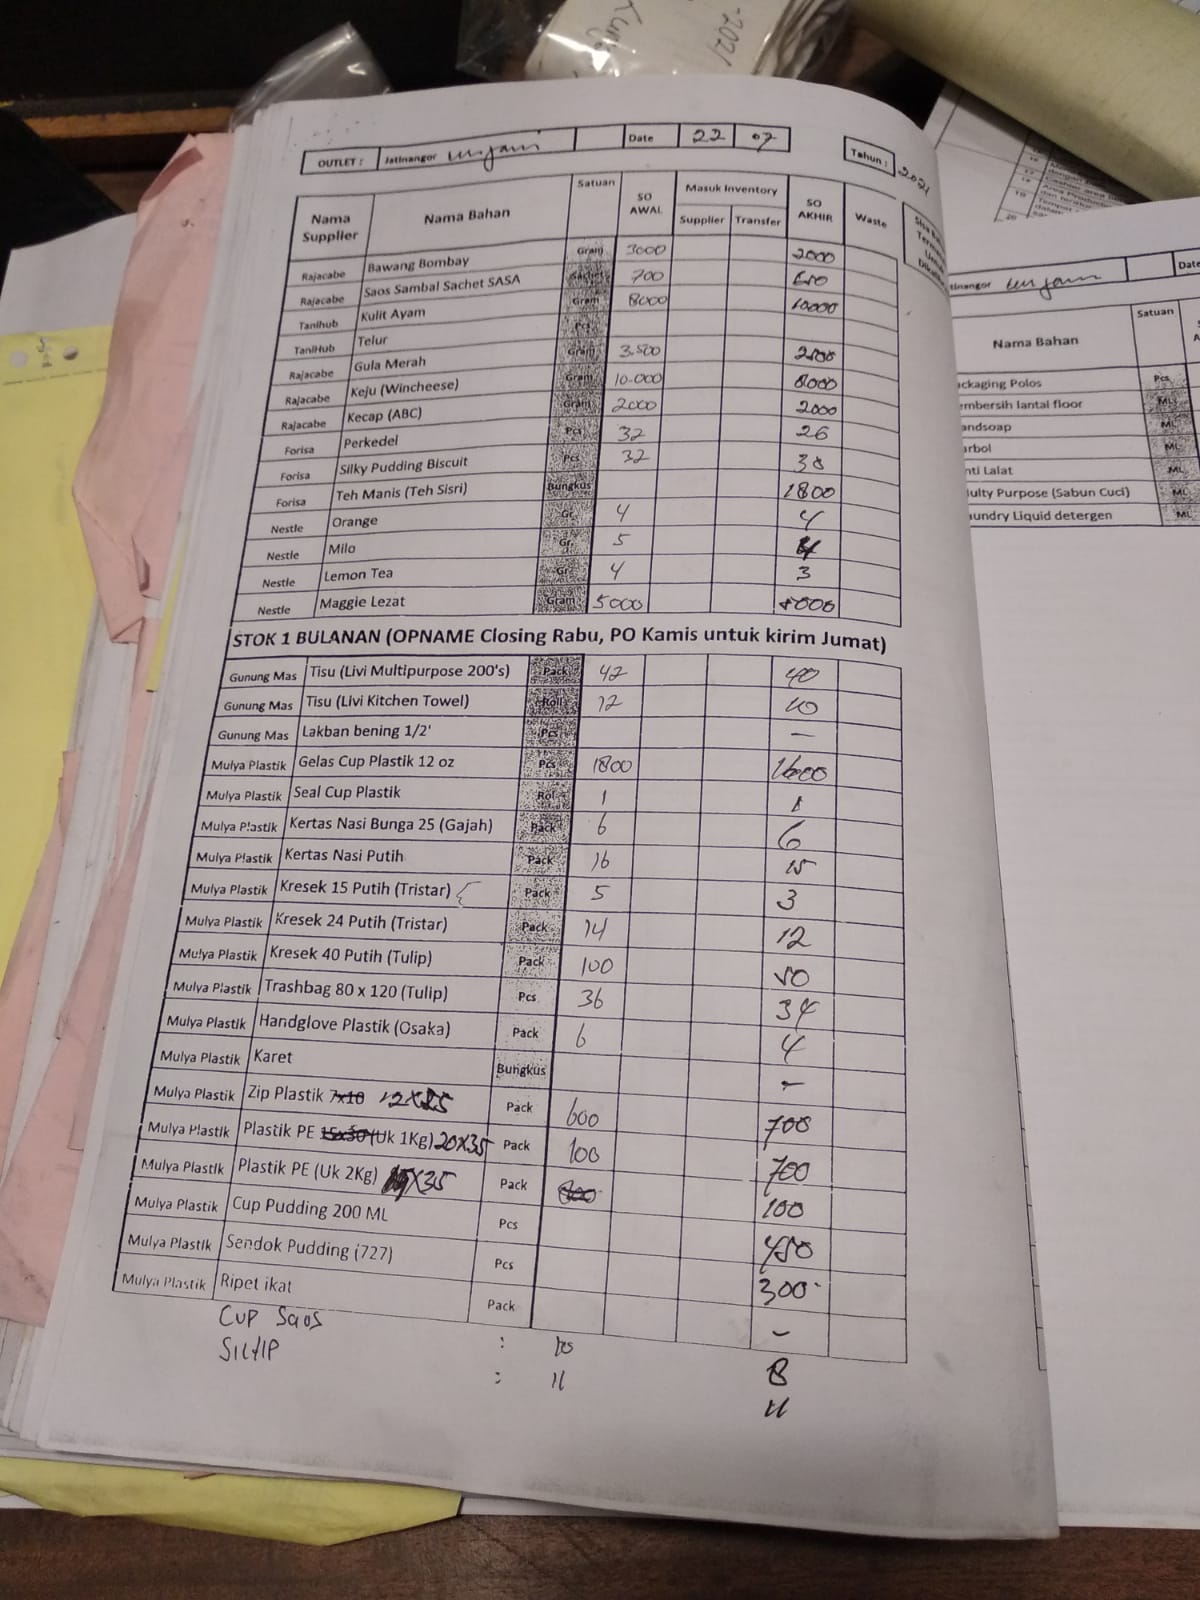 OUTLET : Jatinangor unjani Date 22 07 Tahun : 2021
Nama Supplier Nama Bahan Satuan SO AWAL Masuk Inventory Supplier Transfer SO AKHIR Waste
Rajacabe Bawang Bombay Gram 3000 2000
Rajacabe Saos Sambal Sachet SASA Sachet 700
Tanihub Kulit Ayam Gram 8000 10000
TaniHub Telur Pcs
Rajacabe Gula Merah Gram 3.500
Rajacabe Keju (Wincheese) Gram 10.000 8000
Rajacabe Kecap (ABC) Gram 2000 2000
Forisa Perkedel Pcs 32 26
Forisa Silky Pudding Biscuit Pcs 32
Forisa Teh Manis (Teh Sisri) Bungkus 1800
Nestle Orange Gr 4 4
Nestle Milo Gr 5 4
Nestle Lemon Tea Gr 4 3
Nestle Maggie Lezat Gram 5000
STOK 1 BULANAN (OPNAME Closing Rabu, PO Kamis untuk kirim Jumat)
Gunung Mas Tisu (Livi Multipurpose 200's) Pack 42 40
Gunung Mas Tisu (Livi Kitchen Towel) Roll 12 10
Gunung Mas Lakban bening 1/2' Pcs —
Mulya Plastik Gelas Cup Plastik 12 oz Pcs 1800 1600
Mulya Plastik Seal Cup Plastik Rol 1 1
Mulya Plastik Kertas Nasi Bunga 25 (Gajah) Pack 6 6
Mulya Plastik Kertas Nasi Putih Pack 16 15
Mulya Plastik Kresek 15 Putih (Tristar) Pack 5 3
Mulya Plastik Kresek 24 Putih (Tristar) Pack 14 12
Mulya Plastik Kresek 40 Putih (Tulip) Pack 100 50
Mulya Plastik Trashbag 80 x 120 (Tulip) Pcs 36 34
Mulya Plastik Handglove Plastik (Osaka) Pack 6 4
Mulya Plastik Karet Bungkus -
Mulya Plastik Zip Plastik 7x10 12X25 Pack 600 700
Mulya Plastik Plastik PE 15x30 (Uk 1Kg) 20X35 Pack 100 700
Mulya Plastik Plastik PE (Uk 2Kg) X35 Pack 100
Mulya Plastik Cup Pudding 200 ML Pcs 450
Mulya Plastik Sendok Pudding (727) Pcs 300
Mulya Plastik Ripet ikat Pack -
Cup Saos :
: 11 11
Jatinangor unjani Date
Nama Bahan Satuan
Packaging Polos Pcs
Pembersih lantai floor ML
Handsoap ML
ML
Anti Lalat ML
Multy Purpose (Sabun Cuci) ML
Laundry Liquid detergen ML